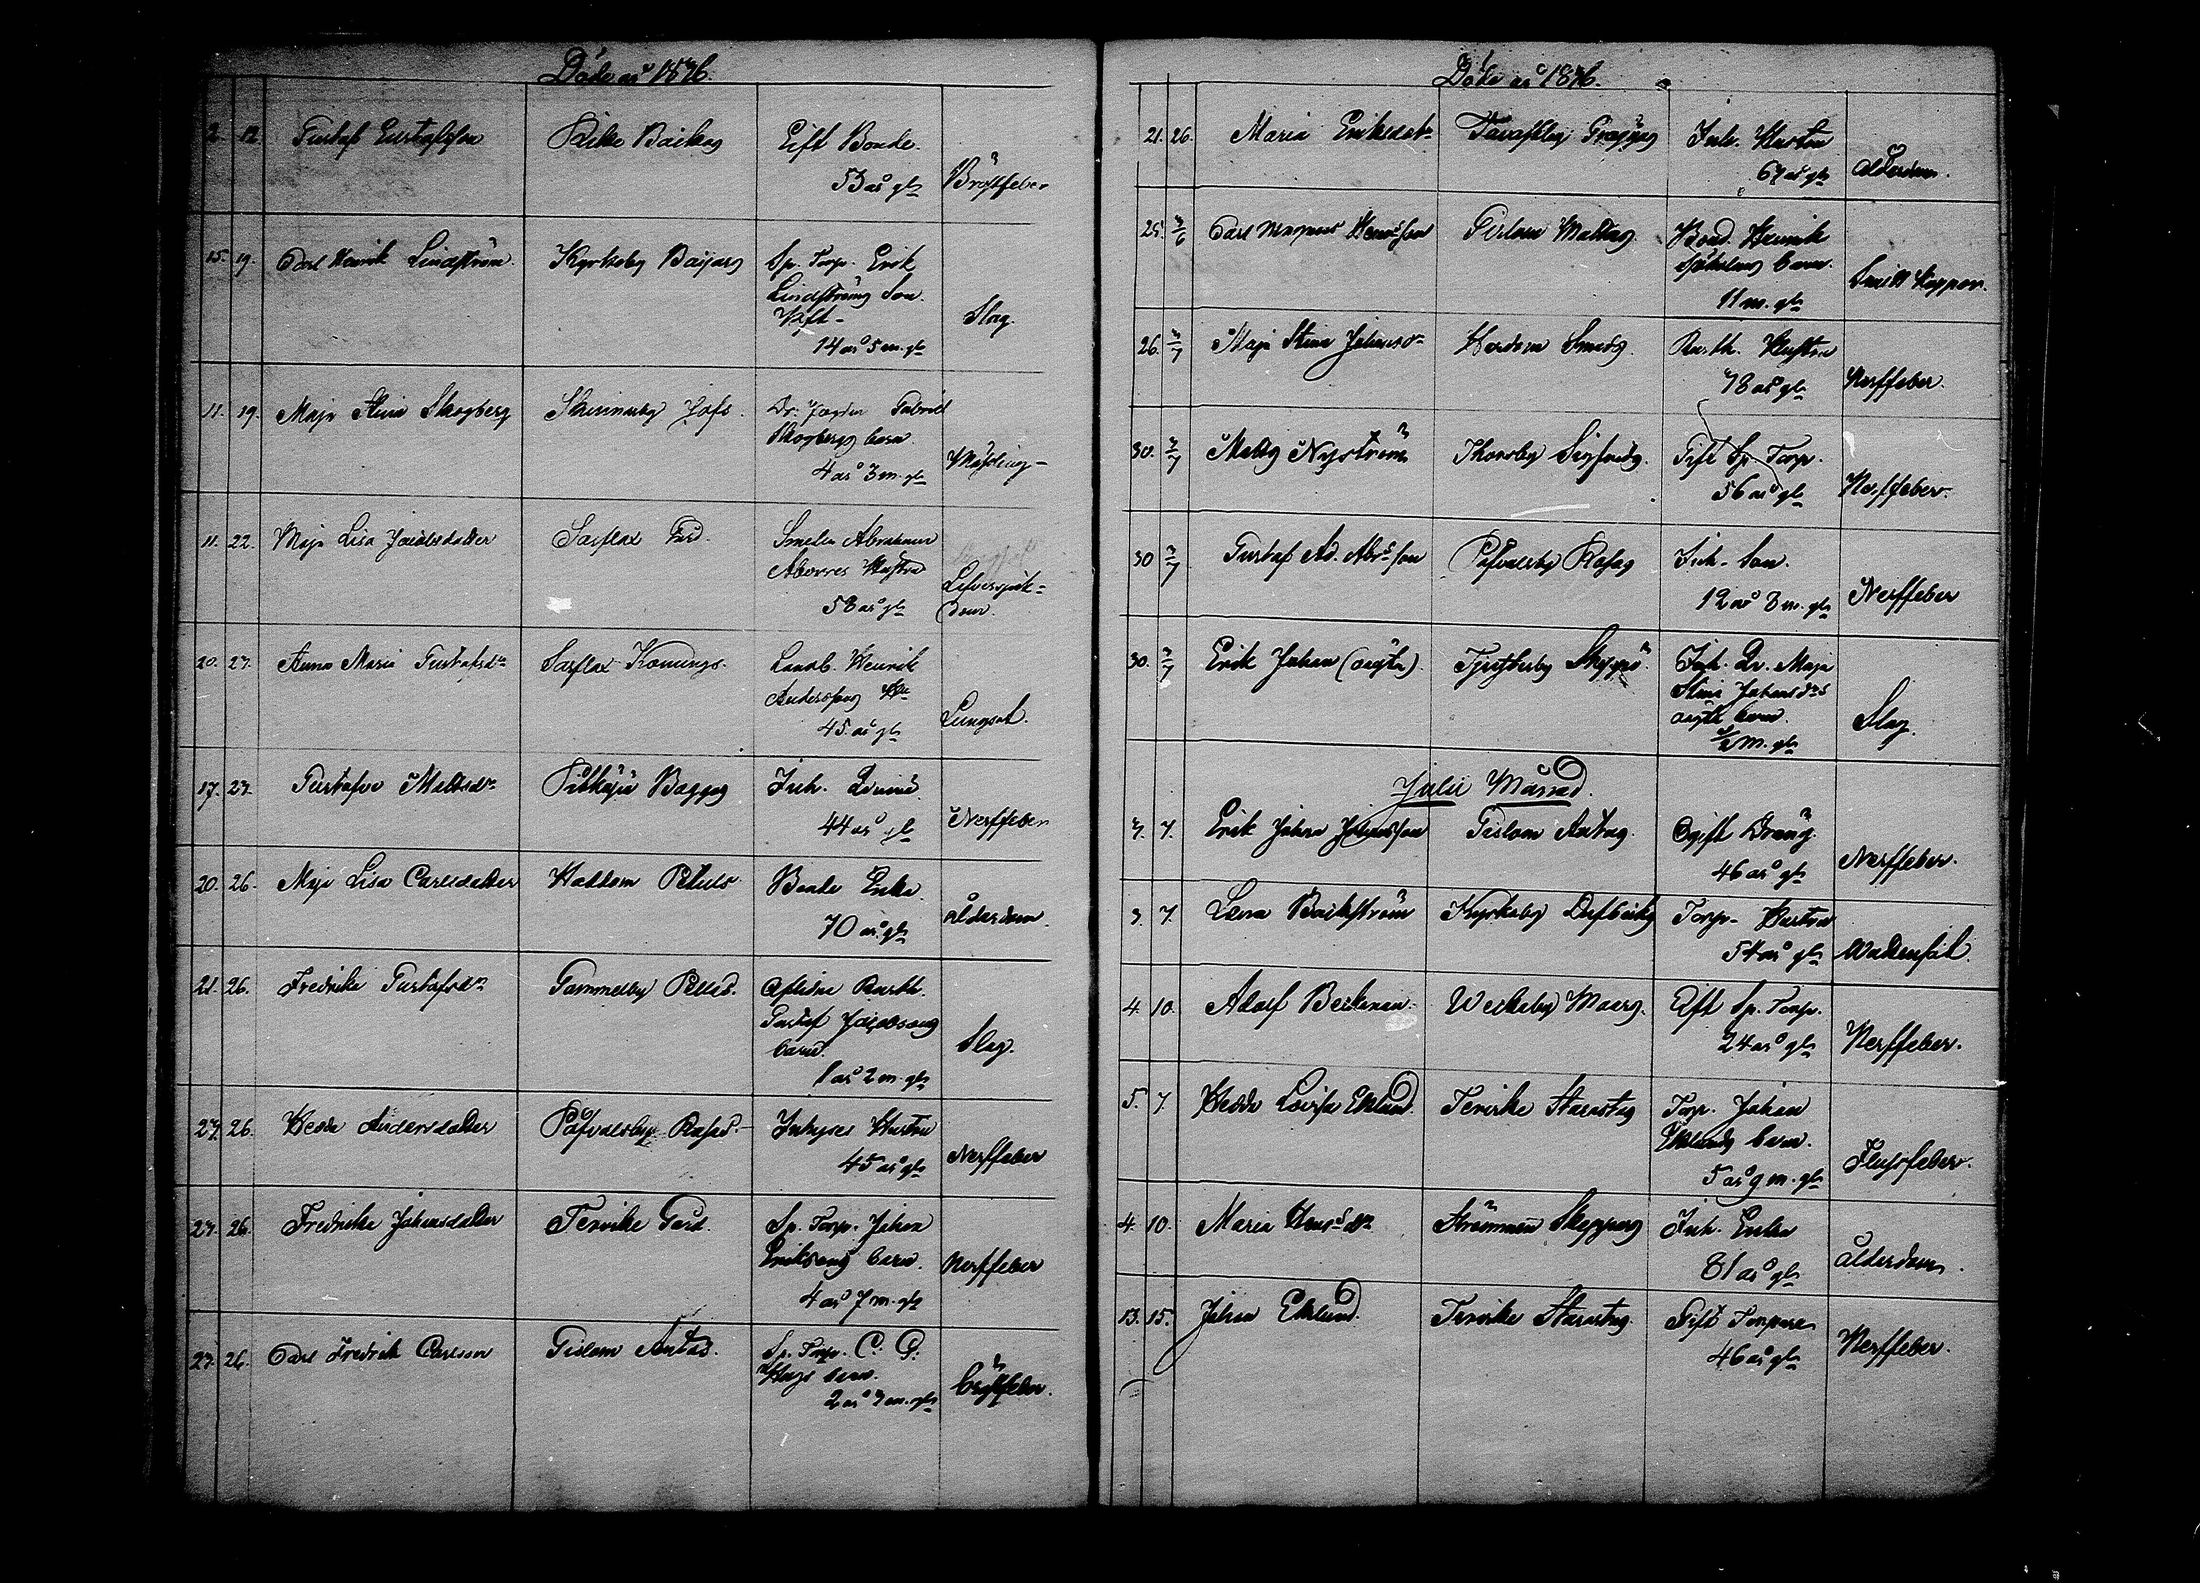 Döde år 1876.
2. 12. Gustaf Gustafsson Gift Bonde.
53 år gl. Bröstfeber
15. 19. Carl Henrik Lindström. Kyrkoby Sp. Torp. Erik
Lindströms Son.
14 år 5 m. gl. Slag.
11. 19. Maja Stina Skogberg Skinnarby Gabriel
Skogbergs barn.
4 år 3 m. gl. Mäsling
11. 22. Maja Lisa Jacobsdotter Sarflax Gård. Abraham
Hustru
58 år gl. Lefversjuk-
dom.
20. 27. Anna Maria Gustafsdr Sarflax Konungs. Landb. Henrik
Anderssons
45 år gl. Lungsot.
17. 27. Gustafva Mattsdr Pitkäpä Baggas Inh. Qvinna
44 år gl. Nerffeber
20. 26. Maja Lisa Carlsdotter Haddom Bonde Enka
70 år gl. ålderdom.
21. 26. Fredrika Gustafsdr Gammelby Pellas.
Gustaf Jacobssons
barn.
1 år 2 m. gl. Slag.
27. 26. Hedda Andersdotter Påfvalsby Rafas. Inhyses Hustru
45 år gl. Nerffeber
27. 26. Fredrika Johansdotter Tervike Gård. Sp. Torp. Johan
Erikssons barn.
4 år 7 m. gl. Nerffeber
27. 26. Carl Fredrik Carlsson Gislom Antas. Sp. Torp. C. G.
barn.
2 år 7 m. gl. Bröstfeber.
Döde år 1876.
21. 26. Maria Eriksdotr Tavastby Inh. Hustru
67 år gl. ålderdom.
25. 3/6 Carl Magnus Henrsson Gislom Mattas Bond. Henrik
barn.
11 m. gl. Smittkoppor.
26. 2/7 Maja Stina Johansdr Hardom Smeds. Hustru
78 år gl. Nerffeber.
30. 2/7 Matts Nyström Thorsby Sigfreds. Gift Sp. Torp.
56 år gl. Nerffeber.
30 2/7 Gustaf Ad. Abrsson Påfvalsby Rafas Inh. Son.
12 år 8 m. gl. Nerffeber
30. 2/7 Erik Johan (oägta). Tjusterby Skeppö. Inh. Qv. Maja
Stina Johansdrs
oägta barn.
1/2 m. gl. Slag.
Julii Månad.
3. 7. Erik Johan Johansson Gislom Antas. Ogift Dräng.
46 år gl. Nerffeber.
3. 7. Lena Backström Kyrkoby Torp. Hustru
54 år gl. Wattensot.
4. 10. Adolf Beckman. Weckoby Moors. Gift Sp. Torp.
24 år gl. Nerffeber.
5. 7. Hedda Lovisa Eklund. Tervike Starastas Torp. Johan
Eklunds barn.
5 år 9 m. gl. Flussfeber.
4. 10. Maria Hansdr Strömmen Skeppars Inh. Enka
81 år gl. ålderdom.
13. 15. Johan Eklund. Tervike Starastas. Gift Torpare
46 år gl. Nerffeber.